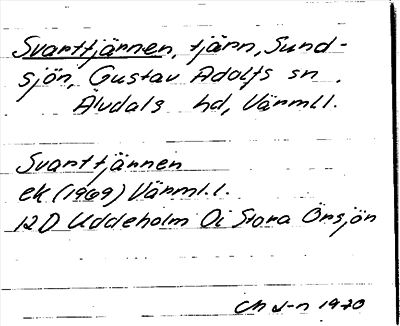 Svarttjärnen, tjärn, Sund-
sjön, Gustav Adolfs sn,
Älvdals hd, Värml.l.
Svarttjärnen
ek (1969) Värml.l.
12D Uddeholm 0i Stora Örsjön
Ch J-n 1970